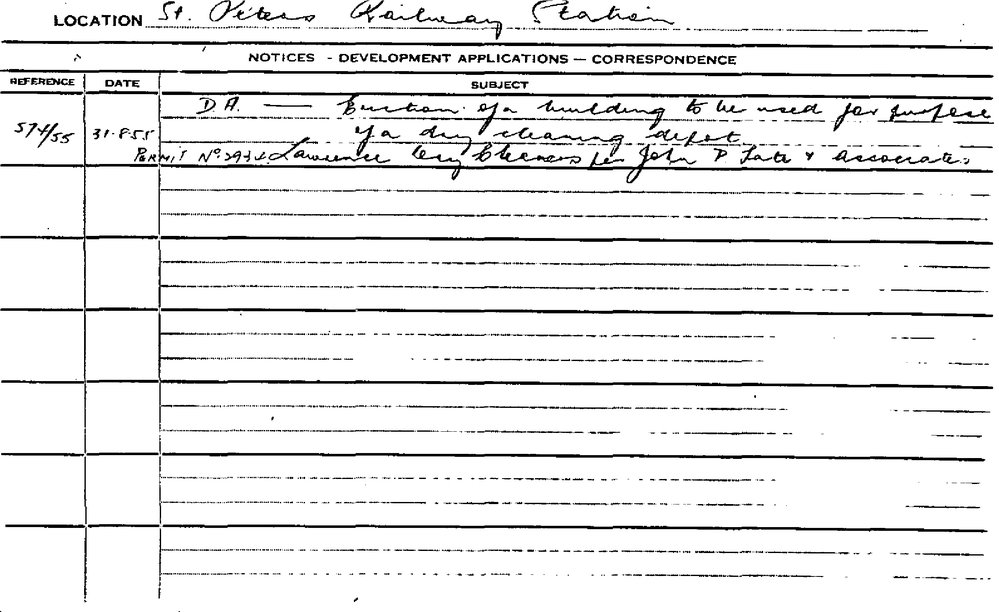 LOCATION St. Peters Railway Station
NOTICES - DEVELOPMENT APPLICATIONS — CORRESPONDENCE
REFERENCE DATE SUBJECT
D.A. — Erection of a building to be used for purpose
574/55 31.8.55 of a dry cleaning depot
PERMIT No. Lawrence Dry Cleaners per John P Tate & Associates